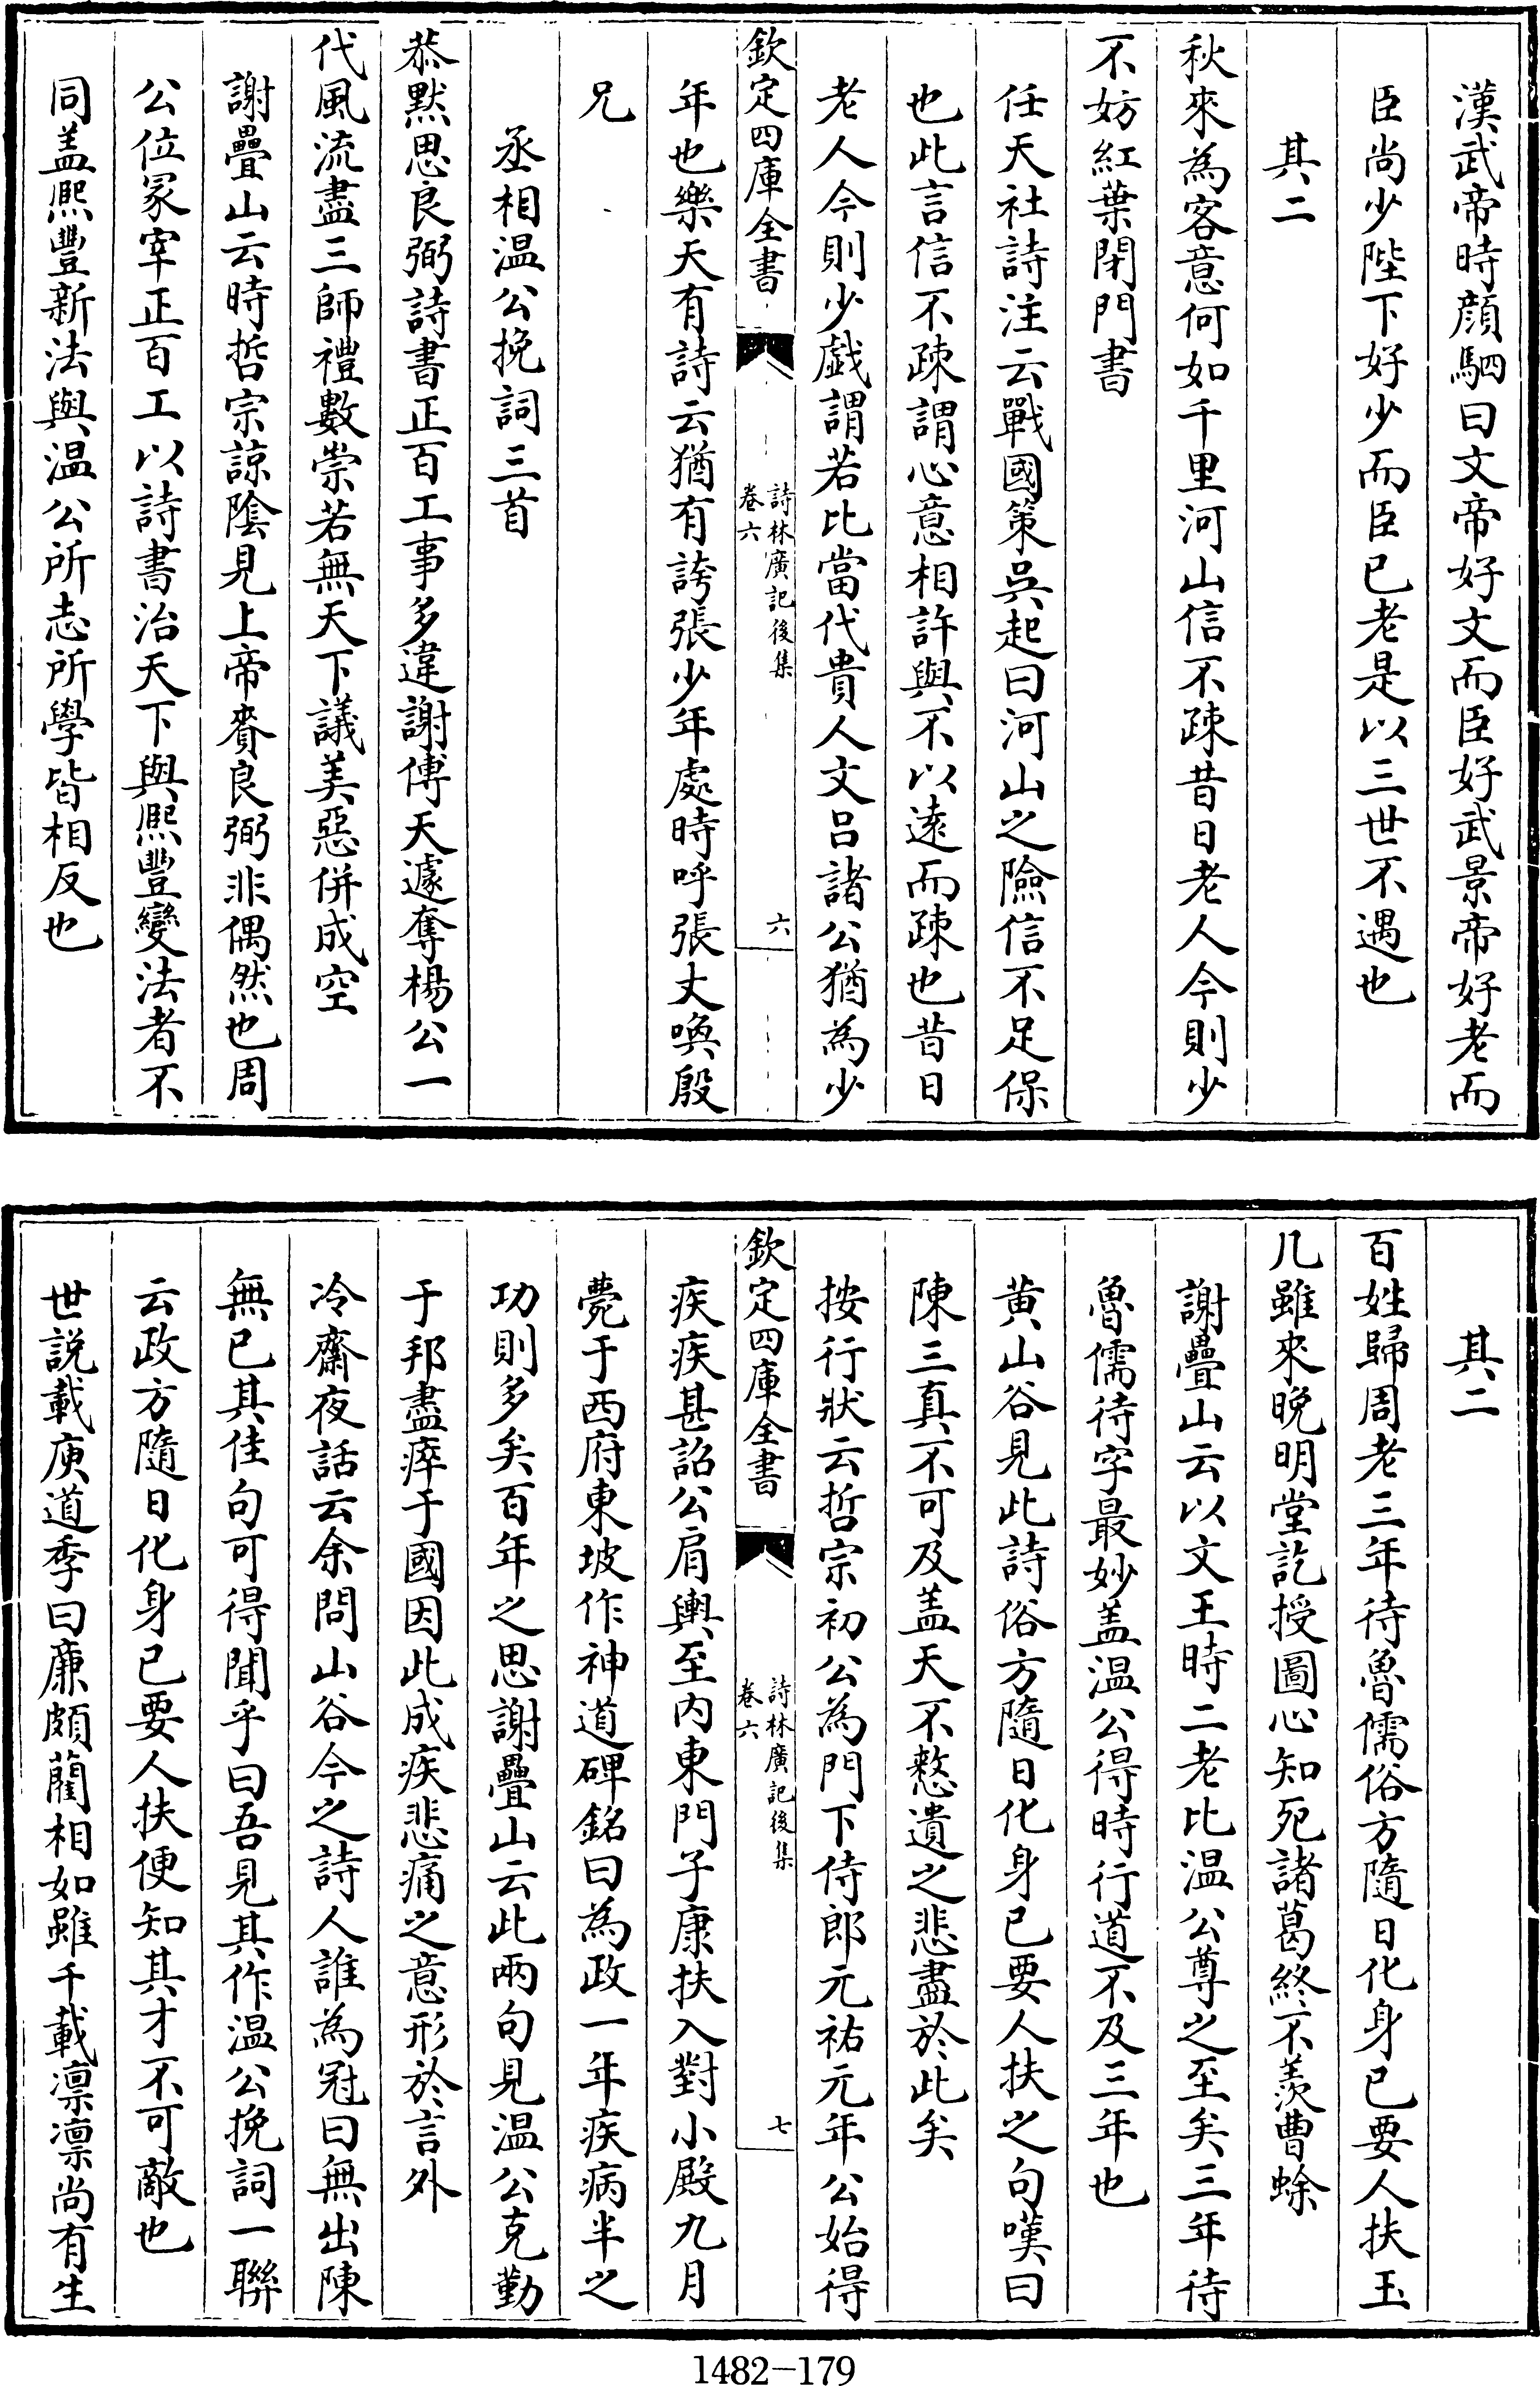 漢武帝時顔駟曰文帝好文而臣好武景帝好老而
臣尚少陛下好少而臣已老是以三世不遇也
其二
秋來為客意何如千里河山信不疎昔日老人今則少
不妨紅葉閉門書
任天社詩注云戰國策吳起曰河山之險信不足保
也此言信不疎謂心意相許與不以逺而疎也昔日
老人今則少戯謂若比當代貴人文吕諸公猶為少
欽定四庫全書
詩林廣記後集
卷六
六
年也樂天有詩云猶有誇張少年處時呼張丈喚殷
兄
丞相温公挽詞三首
恭黙思良弼詩書正百工事多違謝傅天遽奪楊公一
代風流盡三師禮數崇若無天下議美惡併成空
謝疊山云時哲宗諒隂見上帝賚良弼非偶然也周
公位冢宰正百工以詩書治天下與熈豐變法者不
同盖熈豐新法與温公所志所學皆相反也
其二
百姓歸周老三年待魯儒俗方隨日化身已要人扶玉
几雖來晩明堂訖授圖心知死諸葛終不羨曹蜍
謝疊山云以文王時二老比温公尊之至矣三年待
魯儒待字最妙盖温公得時行道不及三年也
黄山谷見此詩俗方隨日化身已要人扶之句嘆曰
陳三真不可及盖天不憗遺之悲盡於此矣
按行狀云哲宗初公為門下侍郎元祐元年公始得
欽定四庫全書
詩林廣記後集
卷六
七
疾疾甚詔公肩輿至内東門子康扶入對小殿九月
薨于西府東坡作神道碑銘曰為政一年疾病半之
功則多矣百年之思謝疊山云此兩句見温公克勤
于邦盡瘁于國因此成疾悲痛之意形於言外
冷齋夜話云余問山谷今之詩人誰為冠曰無出陳
無已其佳句可得聞乎曰吾見其作温公挽詞一聯
云政方隨日化身已要人扶便知其才不可敵也
世説載庾道季曰廉頗藺相如雖千載凛凛尚有生
1482-179